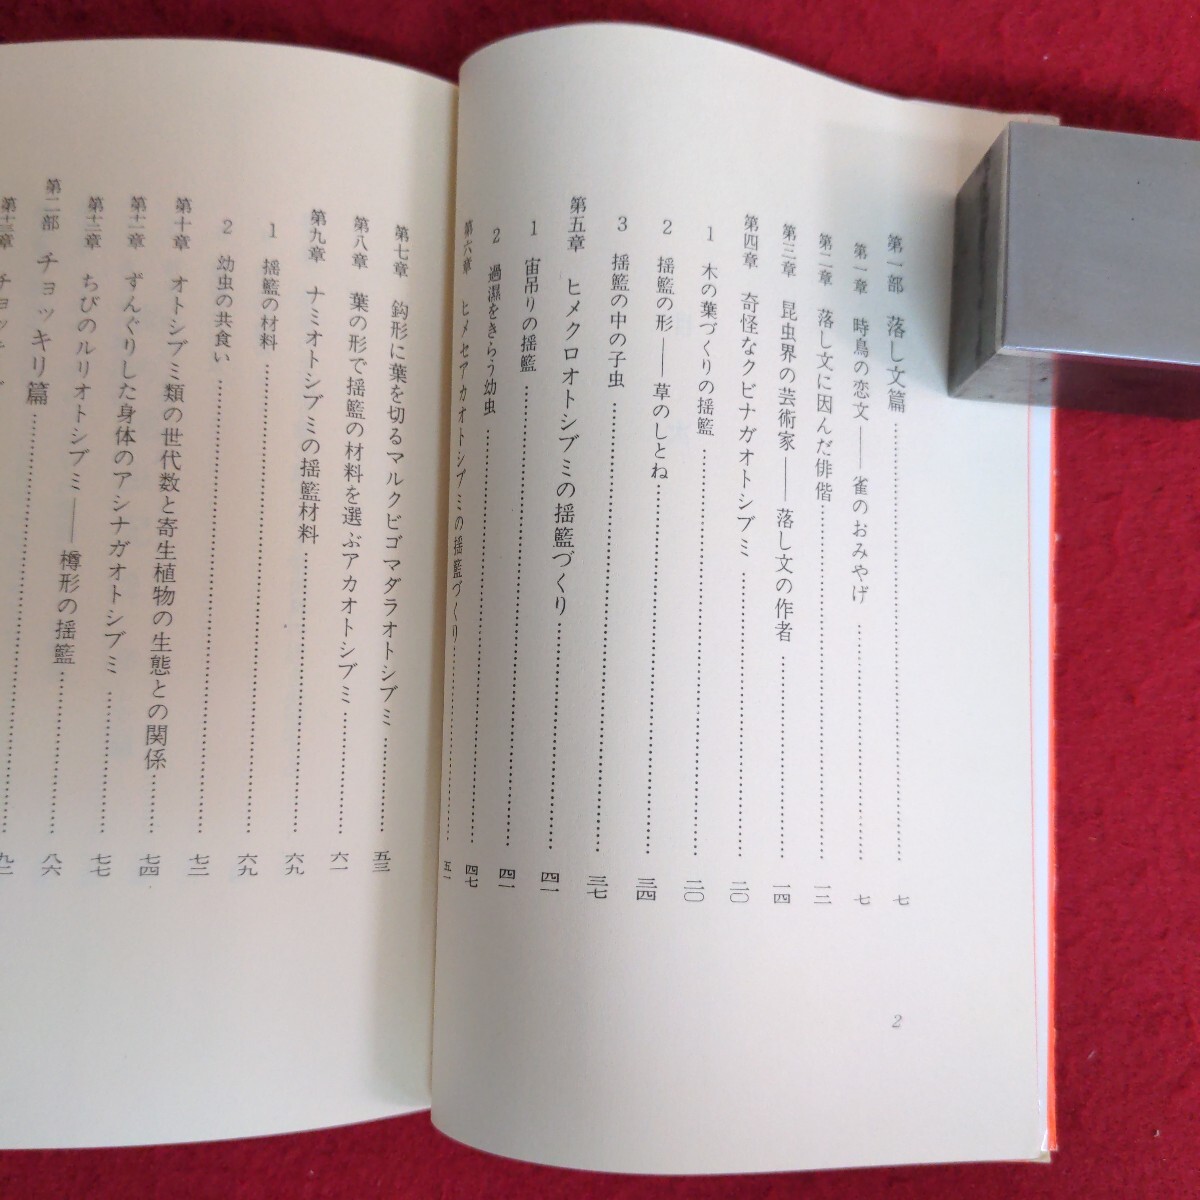 第一部 落し文篇……………………七
第一章 時鳥の恋文――雀のおみやげ……………………七
第二章 落し文に因んだ俳諧……………………一二
第三章 昆虫界の芸術家――落し文の作者……………………一四
第四章 奇怪なクビナガオトシブミ……………………二〇
1 木の葉づくりの揺籃……………………二〇
2 揺籃の形――草のしとね……………………三四
3 揺籃の中の子虫……………………三七
第五章 ヒメクロオトシブミの揺籃づくり……………………四一
1 宙吊りの揺籃……………………四一
2 過湿をきらう幼虫……………………四七
第六章 ヒメセアカオトシブミの揺籃づくり……………………五一
2
第七章 鈎形に葉を切るマルクビゴマダラオトシブミ……………………五三
第八章 葉の形で揺籃の材料を選ぶアカオトシブミ……………………六一
第九章 ナミオトシブミの揺籃材料……………………六九
1 揺籃の材料……………………六九
2 幼虫の共食い……………………七二
第十章 オトシブミ類の世代数と寄生植物の生態との関係……………………七四
第十一章 ずんぐりした身体のアシナガオトシブミ……………………七七
第十二章 ちびのルリオトシブミ――樽形の揺籃……………………八六
第二部 チョッキリ篇……………………九二
第十三章